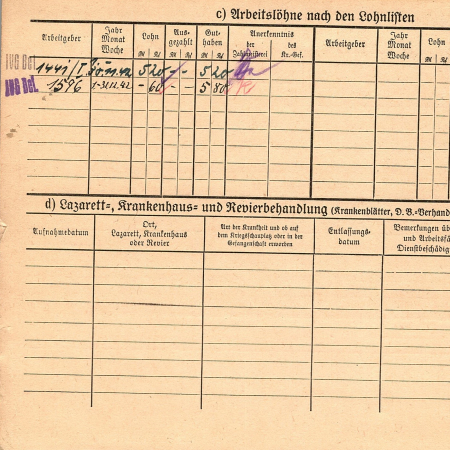 c) Arbeitslöhne nach den Lohnlisten
Arbeitgeber Jahr Monat Woche Lohn ℛℳ ₰ Ausgezahlt ℛℳ ₰ Guthaben ℛℳ ₰ Anerkenntnis der Zahlmeisterei des Kr.-Gef. Arbeitgeber Jahr Monat Woche Lohn ℛℳ ₰
IVG Bel 1441/I 5 20 - - 5 20
IVG Bel. 1596 1-31.12.42 - 60 - - 5 80
d) Lazarett-, Krankenhaus- und Revierbehandlung (Krankenblätter, D. B.-Verhand
Aufnahmedatum Ort, Lazarett, Krankenhaus oder Revier Art der Krankheit und ob auf dem Kriegsschauplatz oder in der Gefangenschaft erworben Entlassungs- datum Bemerkungen üb und Arbeitsfä Dienstbeschädig